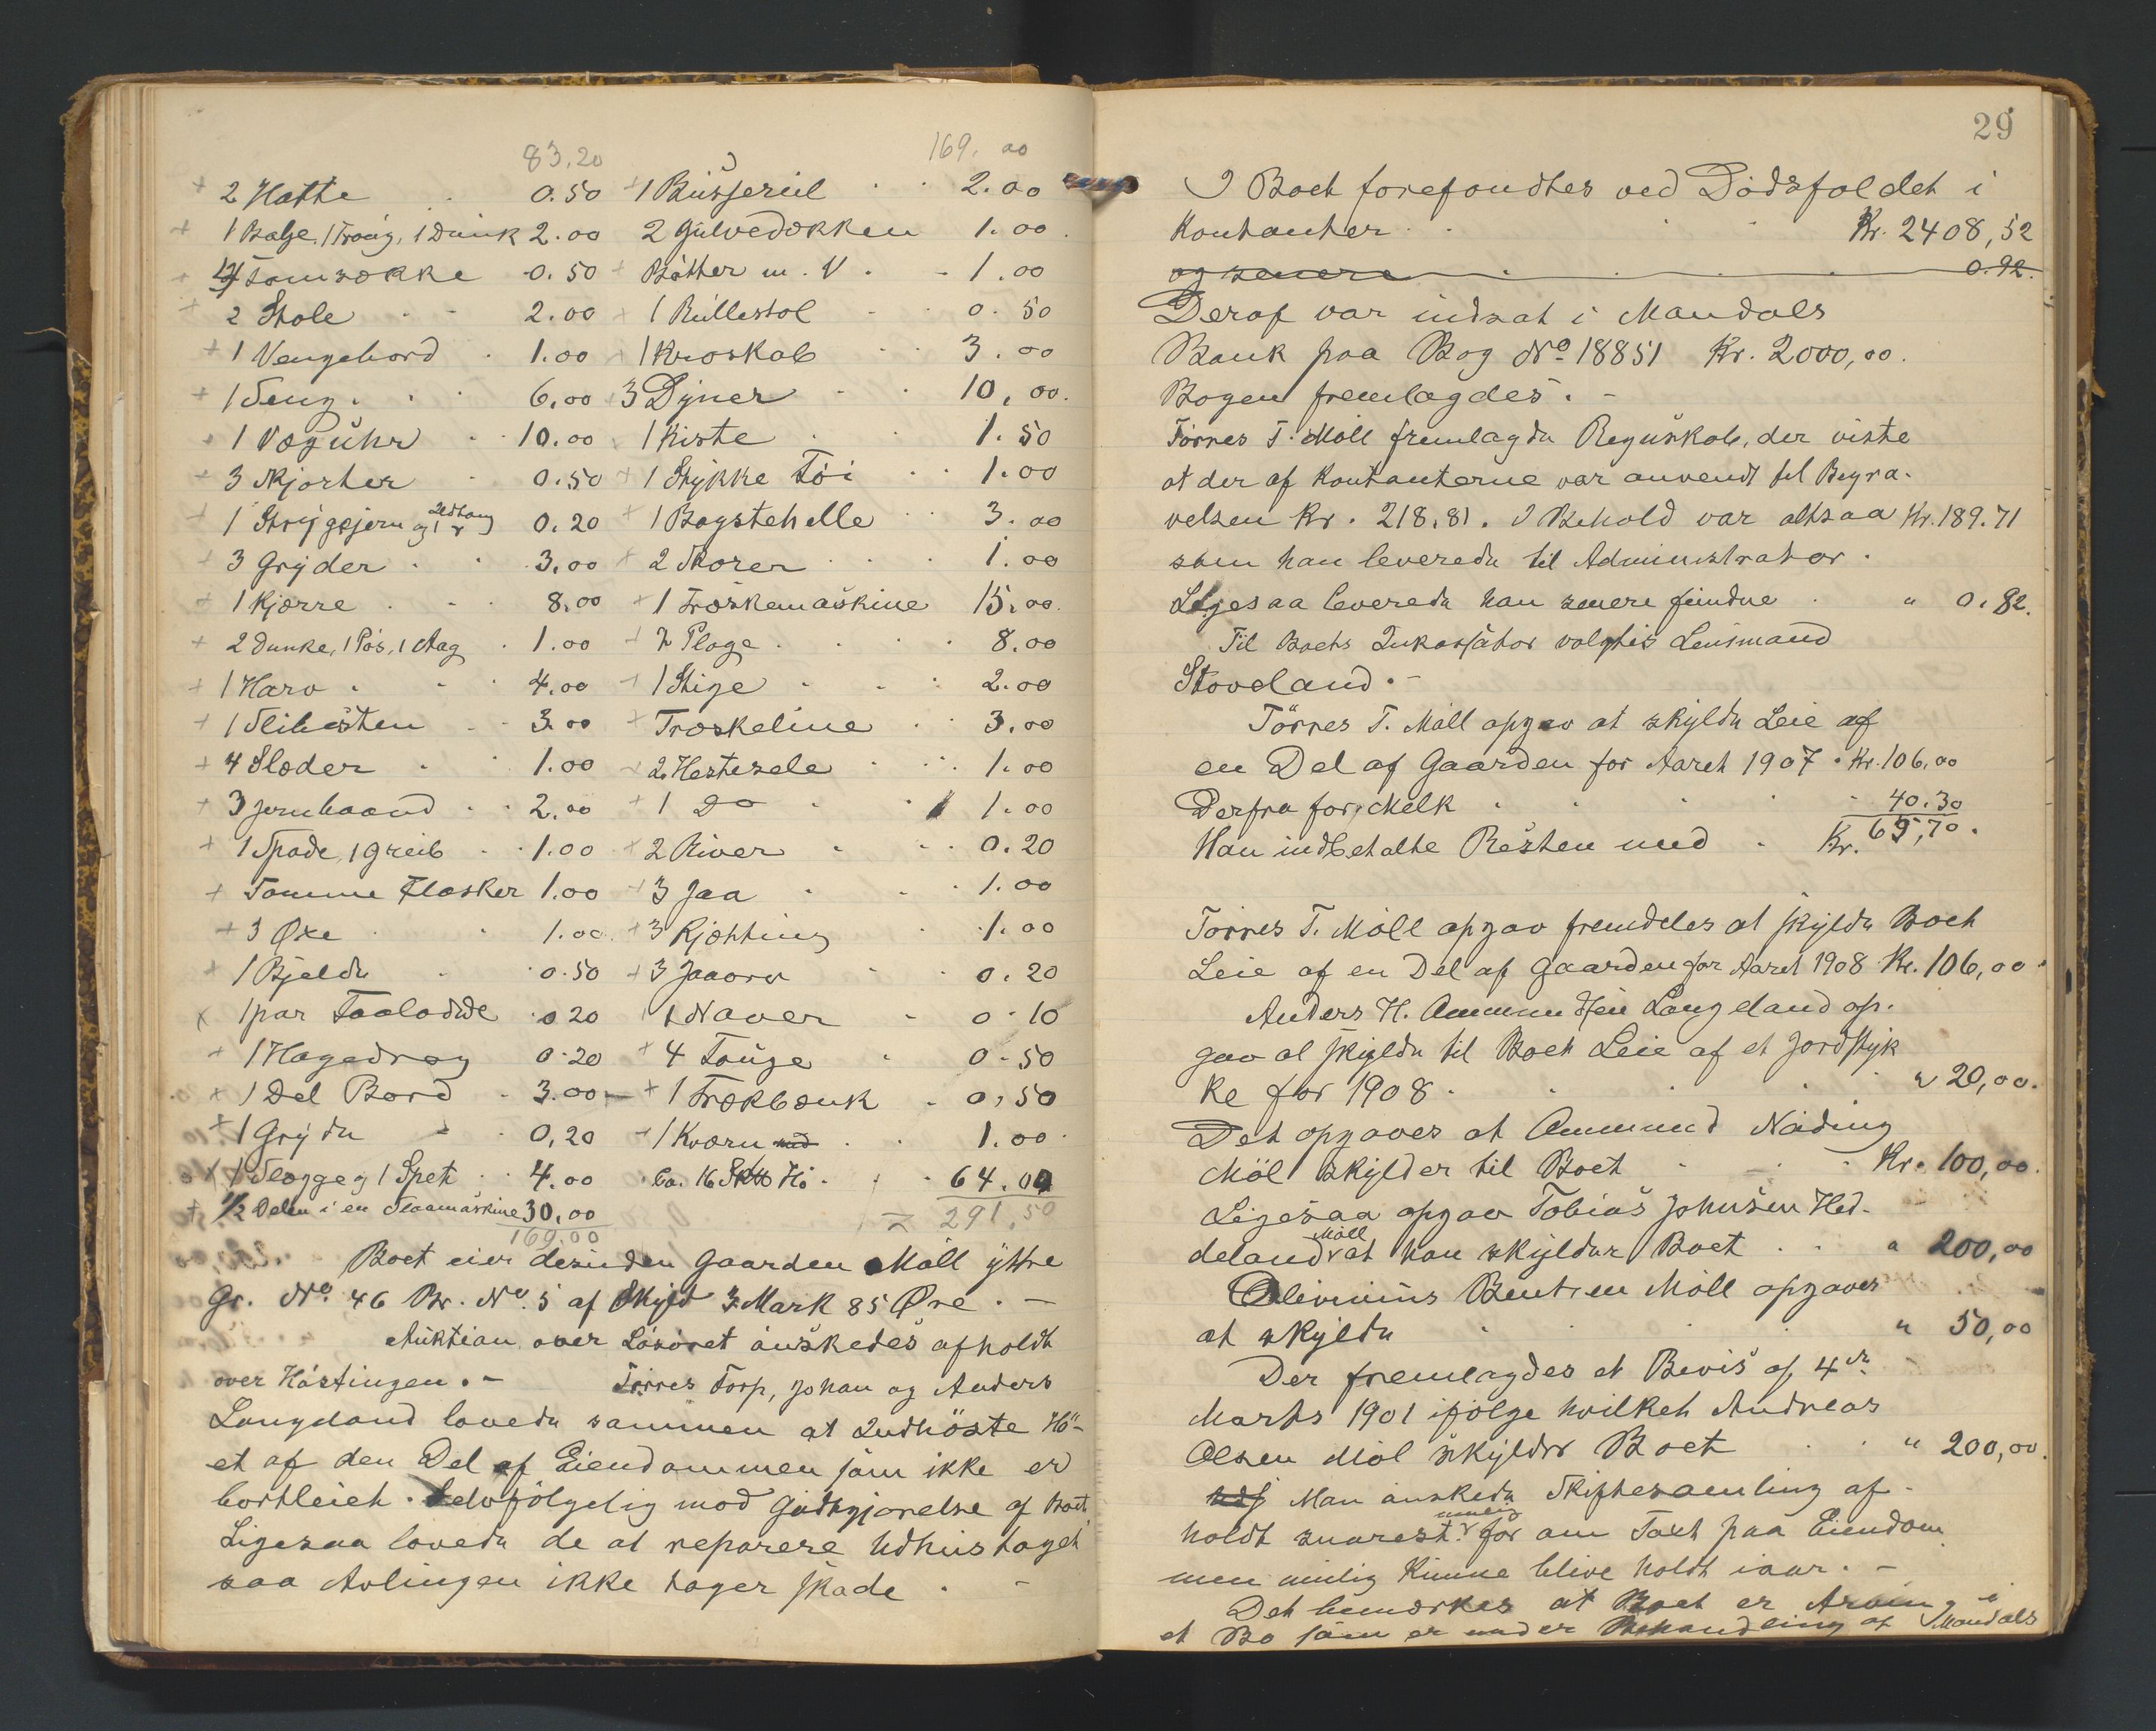 83.20
2 Hatte 0.50
1 Balje, 1 Traug, 1 Dunk 2.00
4 Tomsække 0.50
2 Stole 2.00
1 Vengebord 1.00
1 Seng 6,00
1 Vægúhr 10.00
3 Skjorter 0.50
1 Strygejern og 1 Ildtang 0.20
3 Gryder 3.00
1 Kjærre 8.00
2 Dunke, 1 Pøs, 1 Aag 1.00
1 Harv 4.00
1 Slibesten 3.00
4 Slæder 1.00
3 Jernbaand 2.00
1 Spade, 1 Greib 1.00
Tomme Flasker 1.00
3 Øxe 1.00
1 Bjelde 0.50
1 par 0.20
1 Hagedrag 0.20
1 Del Bord 3.00
1 Gryde 0,20
1 Slægge og 1 Spet 4.00
1/2 Delen i en Slaamaskine 30,00
169.00
169.00
2.00
2 Gulvedækken 1.00
Bøtter m. V. 1.00
1 Rullestol 0.50
1 Kroskab 3.00
3 Dyner 10,00.
1 Kiste 1.50
1 Stykke Tøi 1.00
1 Bagstehelle 3.00
2 1.00
1 Træskemaskine 15.00.
2 Ploge 8.00
1 Stige 2.00
Træskeline 3.00
2 Hestesele 1.00
1 Do 1.00
2 River 0.20
3 Jaa 1.00
3 Kjætting 1.00
3 Jaaorv 0.20
1 Naver 0.10
4 Touge 0.50
1 Trækbænk 0,50
1 Kværn 1.00
Ca. 16 Hø 64.00
291,50
Boet eier desuden Gaarden Møll ytre
Gr. No. 46 Br. No. 5 af Skyld 3 Mark 85 Øre. –
Auktion over Løsøret ønskedes afholdt
over Høstingen. – Tørres Torp, Johan og Anders
Langeland lovede sammen at Indhøste Hø-
et af den Del af Eiendommen som ikke er
bortleiet. Selvfølgelig mod Godtgjørelse af Boet.
Ligesaa lovede de at reparere Udhustaget
saa Avlingen ikke tager Skade. –
29
I Boet forefandtes ved Dødsfaldet i
Kontanter Kr. 2408,52
og senere 0.92.
Deraf var indsat i Mandals
Bank paa Bog No 18851 Kr. 2000,00.
Bogen fremlagdes. –
Tørres T. Møll fremlagde Regnskab, der viste
at der af Kontanterne var anvendt til Begra-
velsen Kr. 218.81. I Behold var altsaa Kr. 189.71
som han leverede til Administrator.
Ligesaa leverede han senere fundne " 0.82.
Til Boets Inkassator valgtes Lensmand
Stoveland. –
Tørres T. Møll opgav at skylde Leie af
en Del af Gaarden for Aaret 1907. Kr. 106,00
Derfra for Melk 40.30
Han indbetalte Resten med Kr. 65,70.
Tørres T. Møll opgav fremdeles at skylde Boet
Leie af en Del af Gaarden for Aaret 1908 Kr. 106,00
Anders H. Ammundsen Langeland op-
gav at skylde til Boet Leie af et Jordstyk
ke for 1908 " 20,00.
Det opgaves at Ammund Nøding
Møl skylder til Boet Kr. 100,00.
Ligesaa opgav Tobias Johnsen Hed-
deland Møll at han skylder Boet " 200,00
Oliminus Bentsen Møll opgaves
at skylde " 50,00
Der fremlagdes et Bevis af 4de
Marts 1901 ifølge hvilket Andreas
Olsen Møl skylder Boet " 200,00.
Man ønskede Skiftesamling af-
holdt snarest mulig for om Taxt paa Eiendom
men mulig Kunne blive holdt iaar. –
Det bemærkes at Boet er Arving i
et Bo som er under Behandling af Mandals